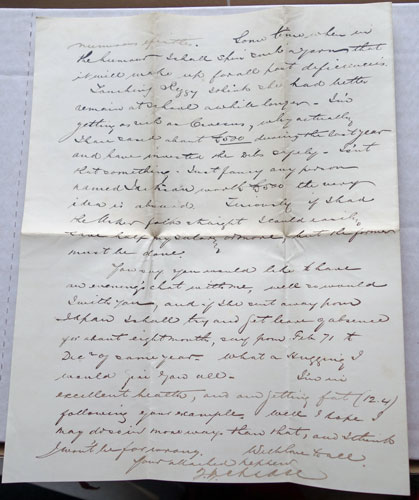 Some time when in
the humour I shall spin such a yarn that
it will make up for all past deficiencies
Touching Peggy I think she had better
remain at school a while longer - I'm
getting as rich as Croesus, why actually
I have saved about £500 during the last year
and have invested the safely - Isn't
that something. Just fancy any person
named worth £500 the very
idea is absurd. Seriously if I had
the straight I could easily
save half my salary or more, but the former
must be done.
You say you would like to have
an evening's chat with me, well so would
I with you, and if I'm sent away from
Japan I shall try and get leave of absence
for about eight months, say from Feb 71 to
Dec of same year. What a hugging I
would give you all - I'm in
excellent health, and am getting fat (12.4)
following your example. Well I hope I
may do so in more ways than that, and I think
I won't be far wrong. With love to all
Your attached nephew